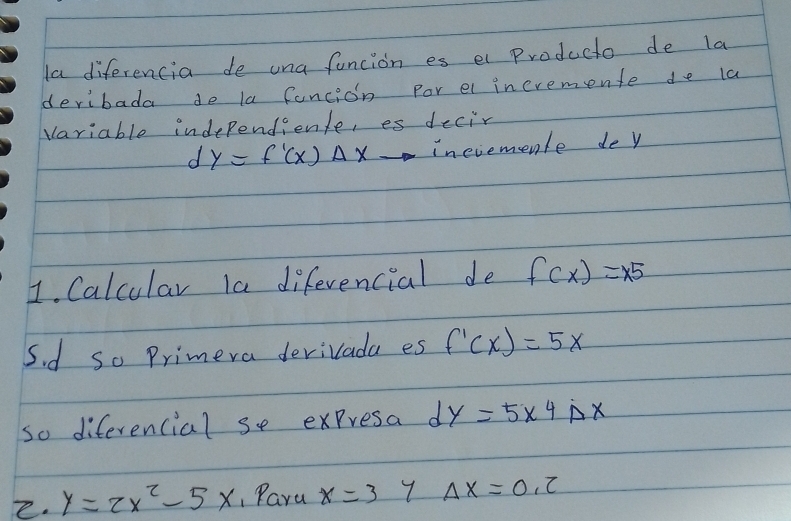 la diferencia de una función es el Producto de la
deribada de la función Por el incremente de la
variable independiente, es decir
dy = f'(x) Δx → incremente de y
1. Calcular la diferencial de f(x) = x5
S.d so Primera derivada es f'(x) = 5x
so diferencial se expresa dy = 5x4 Δx
2. y = 2x² - 5x, Para x = 3 y Δx = 0,2